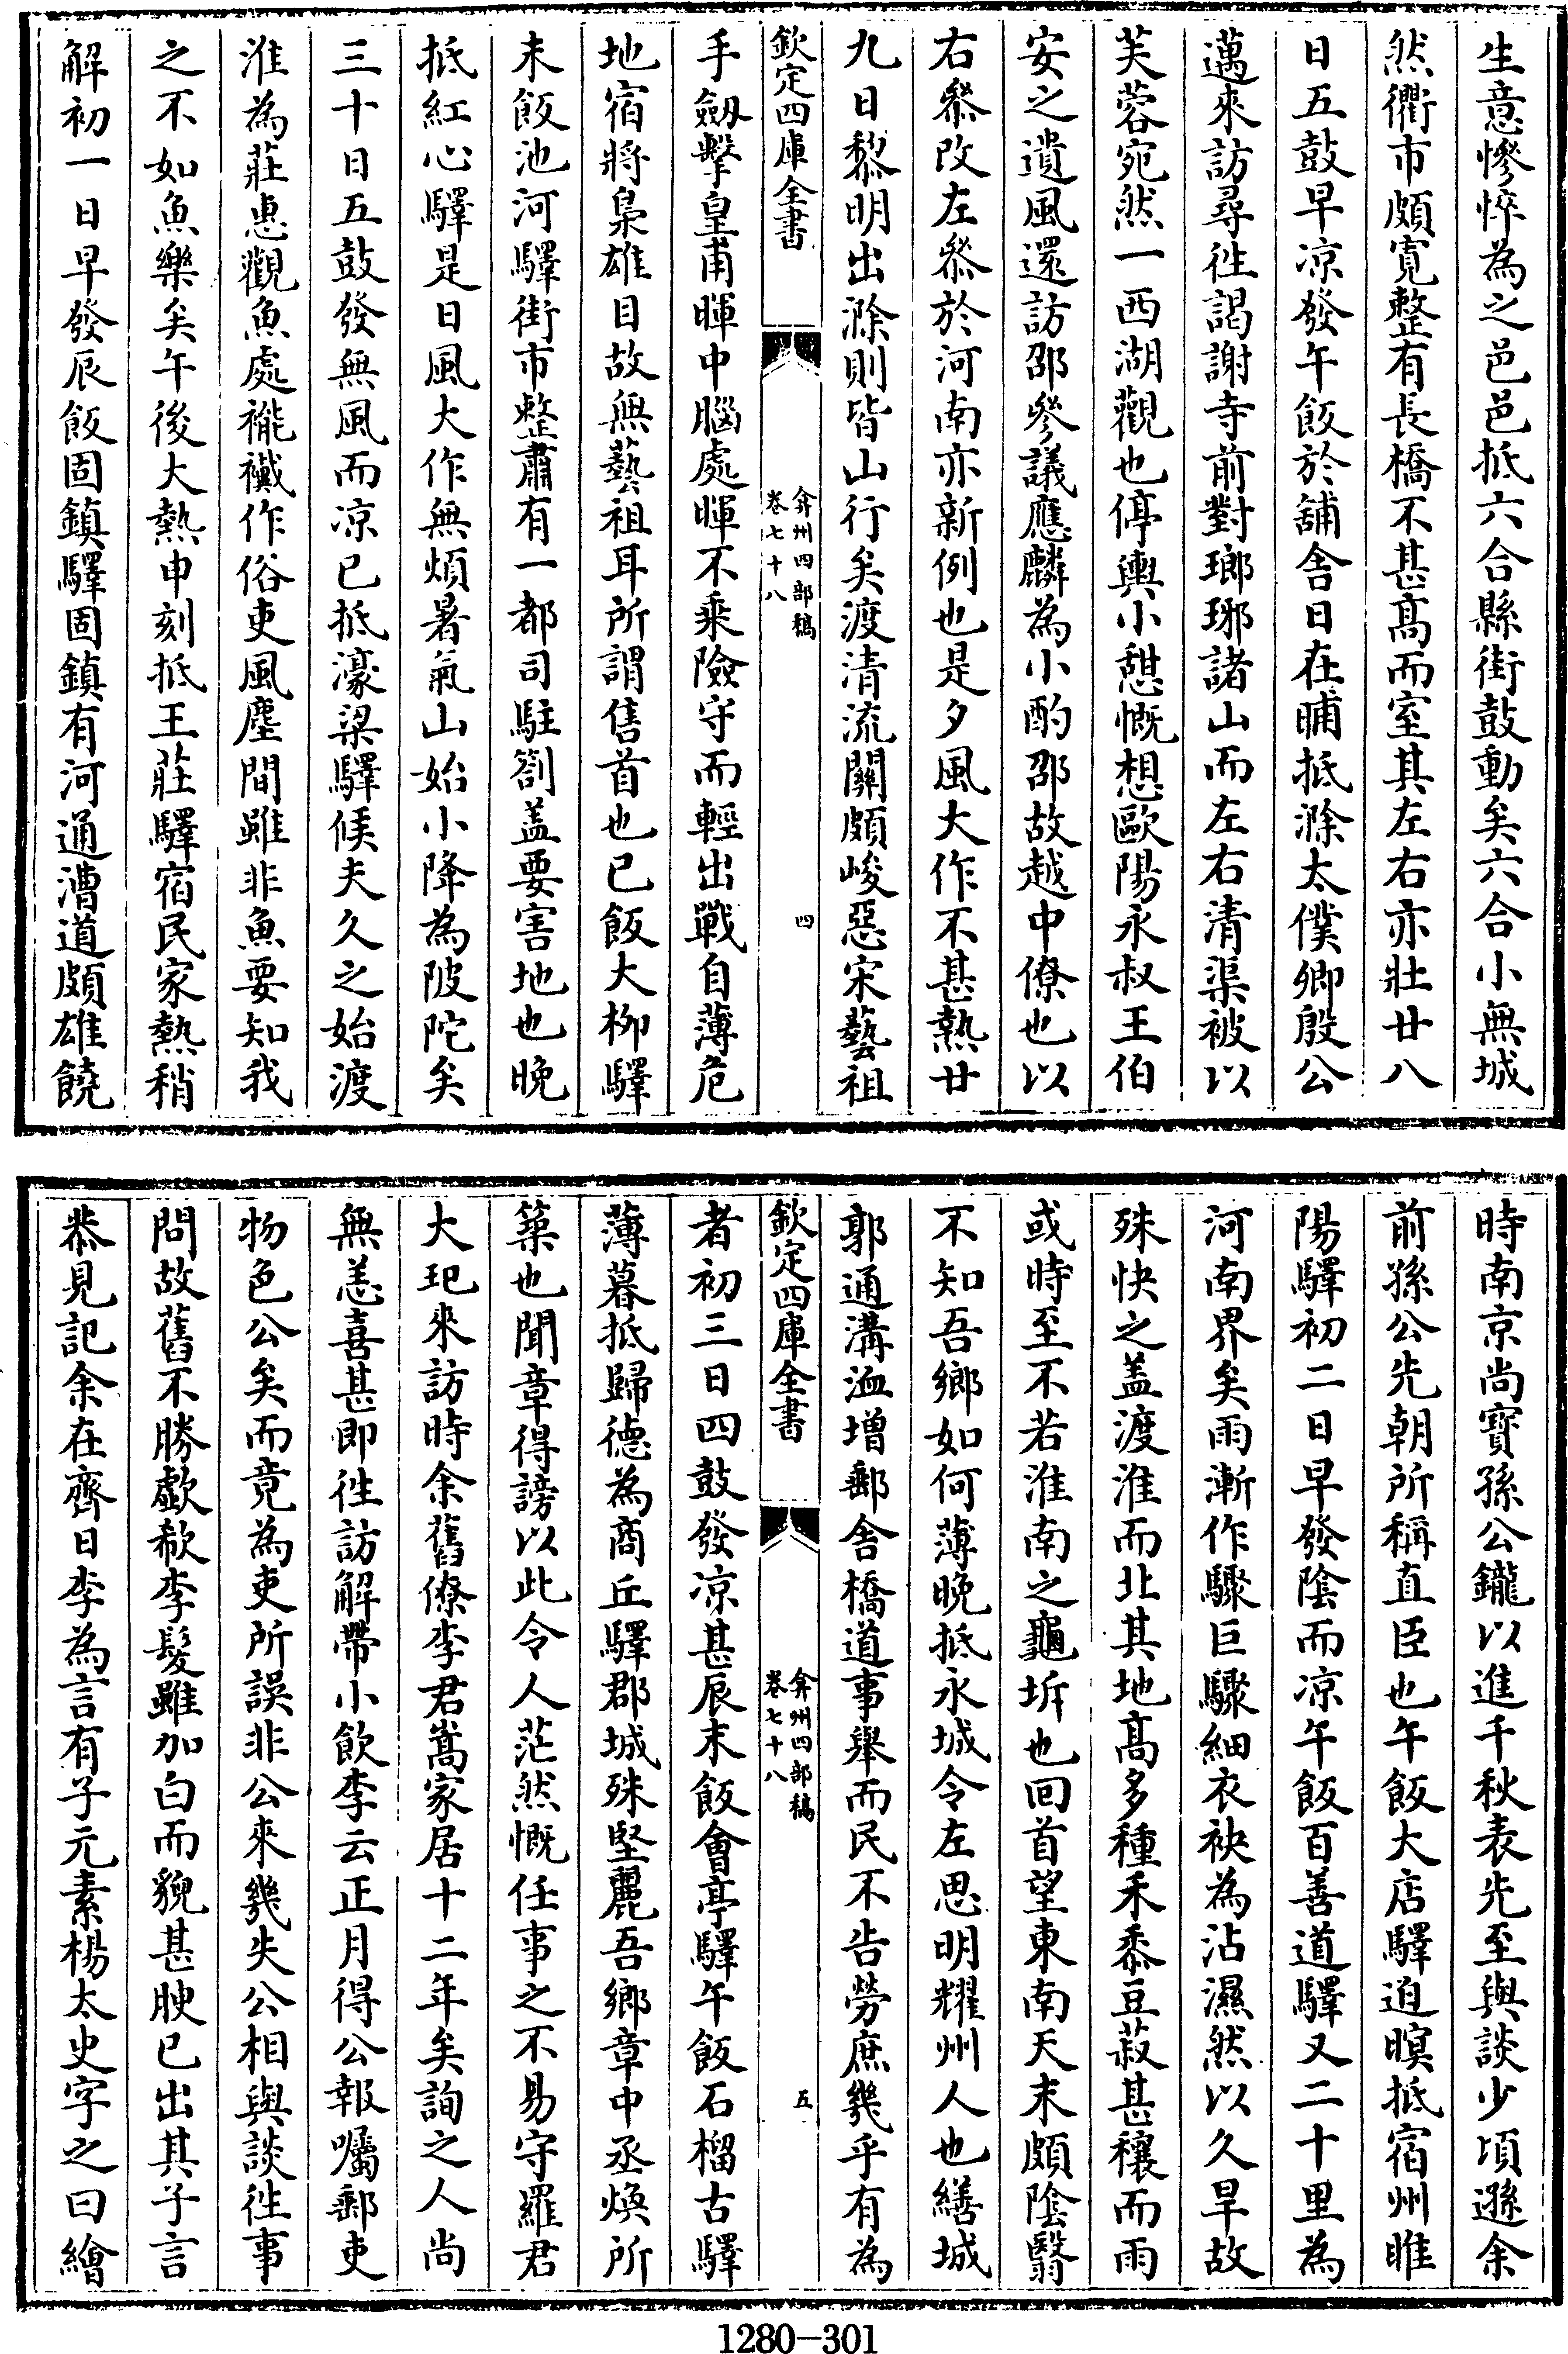 生意慘悴為之邑邑抵六合縣街鼓動矣六合小無城
然衢市頗寬整有長橋不甚髙而室其左右亦壯廿八
日五鼓早凉發午飯於舖舎日在晡抵滁太僕卿殷公
邁來訪尋徃謁謝寺前對瑯琊諸山而左右清渠被以
芙蓉宛然一西湖觀也停輿小憇慨想歐陽永叔王伯
安之遺風還訪邵參議應麟為小酌邵故越中僚也以
右叅改左叅於河南亦新例也是夕風大作不甚熱廿
九日黎明出滁則皆山行矣渡清流關頗峻惡宋藝祖
欽定四庫全書
弇州四部稿
卷七十八
四
手劔擊皇甫暉中腦處暉不乘險守而輕出戰自薄危
地宿將梟雄目故無藝祖耳所謂售首也已飯大柳驛
末飯池河驛街市整肅有一都司駐劄盖要害地也晚
抵紅心驛是日風大作無煩暑氣山始小降為陂陀矣
三十日五鼓發無風而凉已抵濠梁驛候夫久之始渡
淮為莊惠觀魚處襹襶作俗吏風塵間雖非魚要知我
之不如魚樂矣午後大熱申刻抵王莊驛宿民家熱稍
解初一日早發辰飯固鎮驛固鎮有河通漕道頗雄饒
時南京尚寳孫公鑨以進千秋表先至與談少頃遜余
前孫公先朝所稱直臣也午飯大店驛迫暝抵宿州睢
陽驛初二日早發隂而凉午飯百善道驛又二十里為
河南界矣雨漸作驟巨驟細衣袂為沾濕然以久旱故
殊快之盖渡淮而北其地髙多種禾黍豆菽甚穰而雨
或時至不若淮南之龜坼也回首望東南天末頗隂翳
不知吾鄉如何薄晚抵永城令左思明耀州人也繕城
郭通溝洫增郵舎橋道事舉而民不告勞庶幾乎有為
欽定四庫全書
弇州四部稿
卷七十八
五
者初三日四鼓發凉甚辰末飯㑹亭驛午飯石榴古驛
薄暮抵歸德為商丘驛郡城殊堅麗吾鄉章中丞煥所
築也聞章得謗以此令人茫然慨任事之不易守羅君
大玘來訪時余舊僚李君嵩家居十二年矣詢之人尚
無恙喜甚即徃訪解帶小飲李云正月得公報囑郵吏
物色公矣而竟為吏所誤非公來幾失公相與談徃事
問故舊不勝歔欷李髪雖加白而貌甚腴已出其子言
恭見記余在齊日李為言有子元素楊太史字之曰繪
1280-301